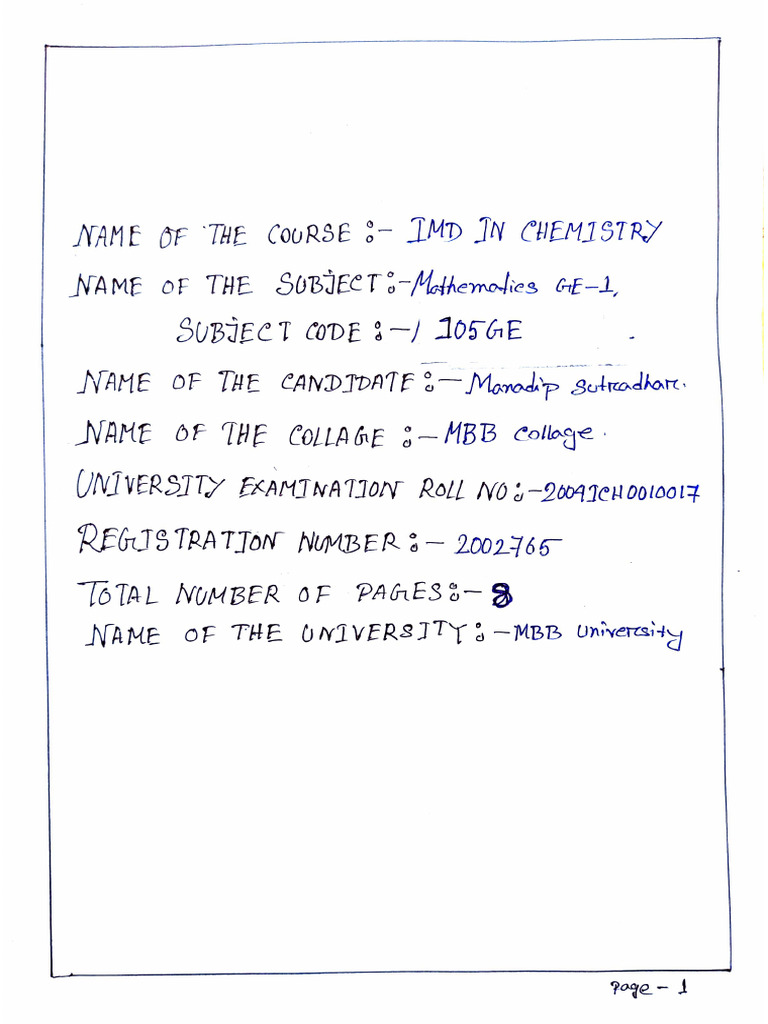 NAME OF THE COURSE :- IMD IN CHEMISTRY
NAME OF THE SUBJECT:-Mathematics GE-1,
SUBJECT CODE :-/ 105GE
NAME OF THE CANDIDATE:-Manadip Sutradhar.
NAME OF THE COLLAGE :-MBB Collage.
UNIVERSITY EXAMINATION ROLL NO:-2009ICH0010017
REGISTRATION NUMBER:- 2002765
TOTAL NUMBER OF PAGES:- 8
NAME OF THE UNIVERSITY:-MBB University
Page - 1